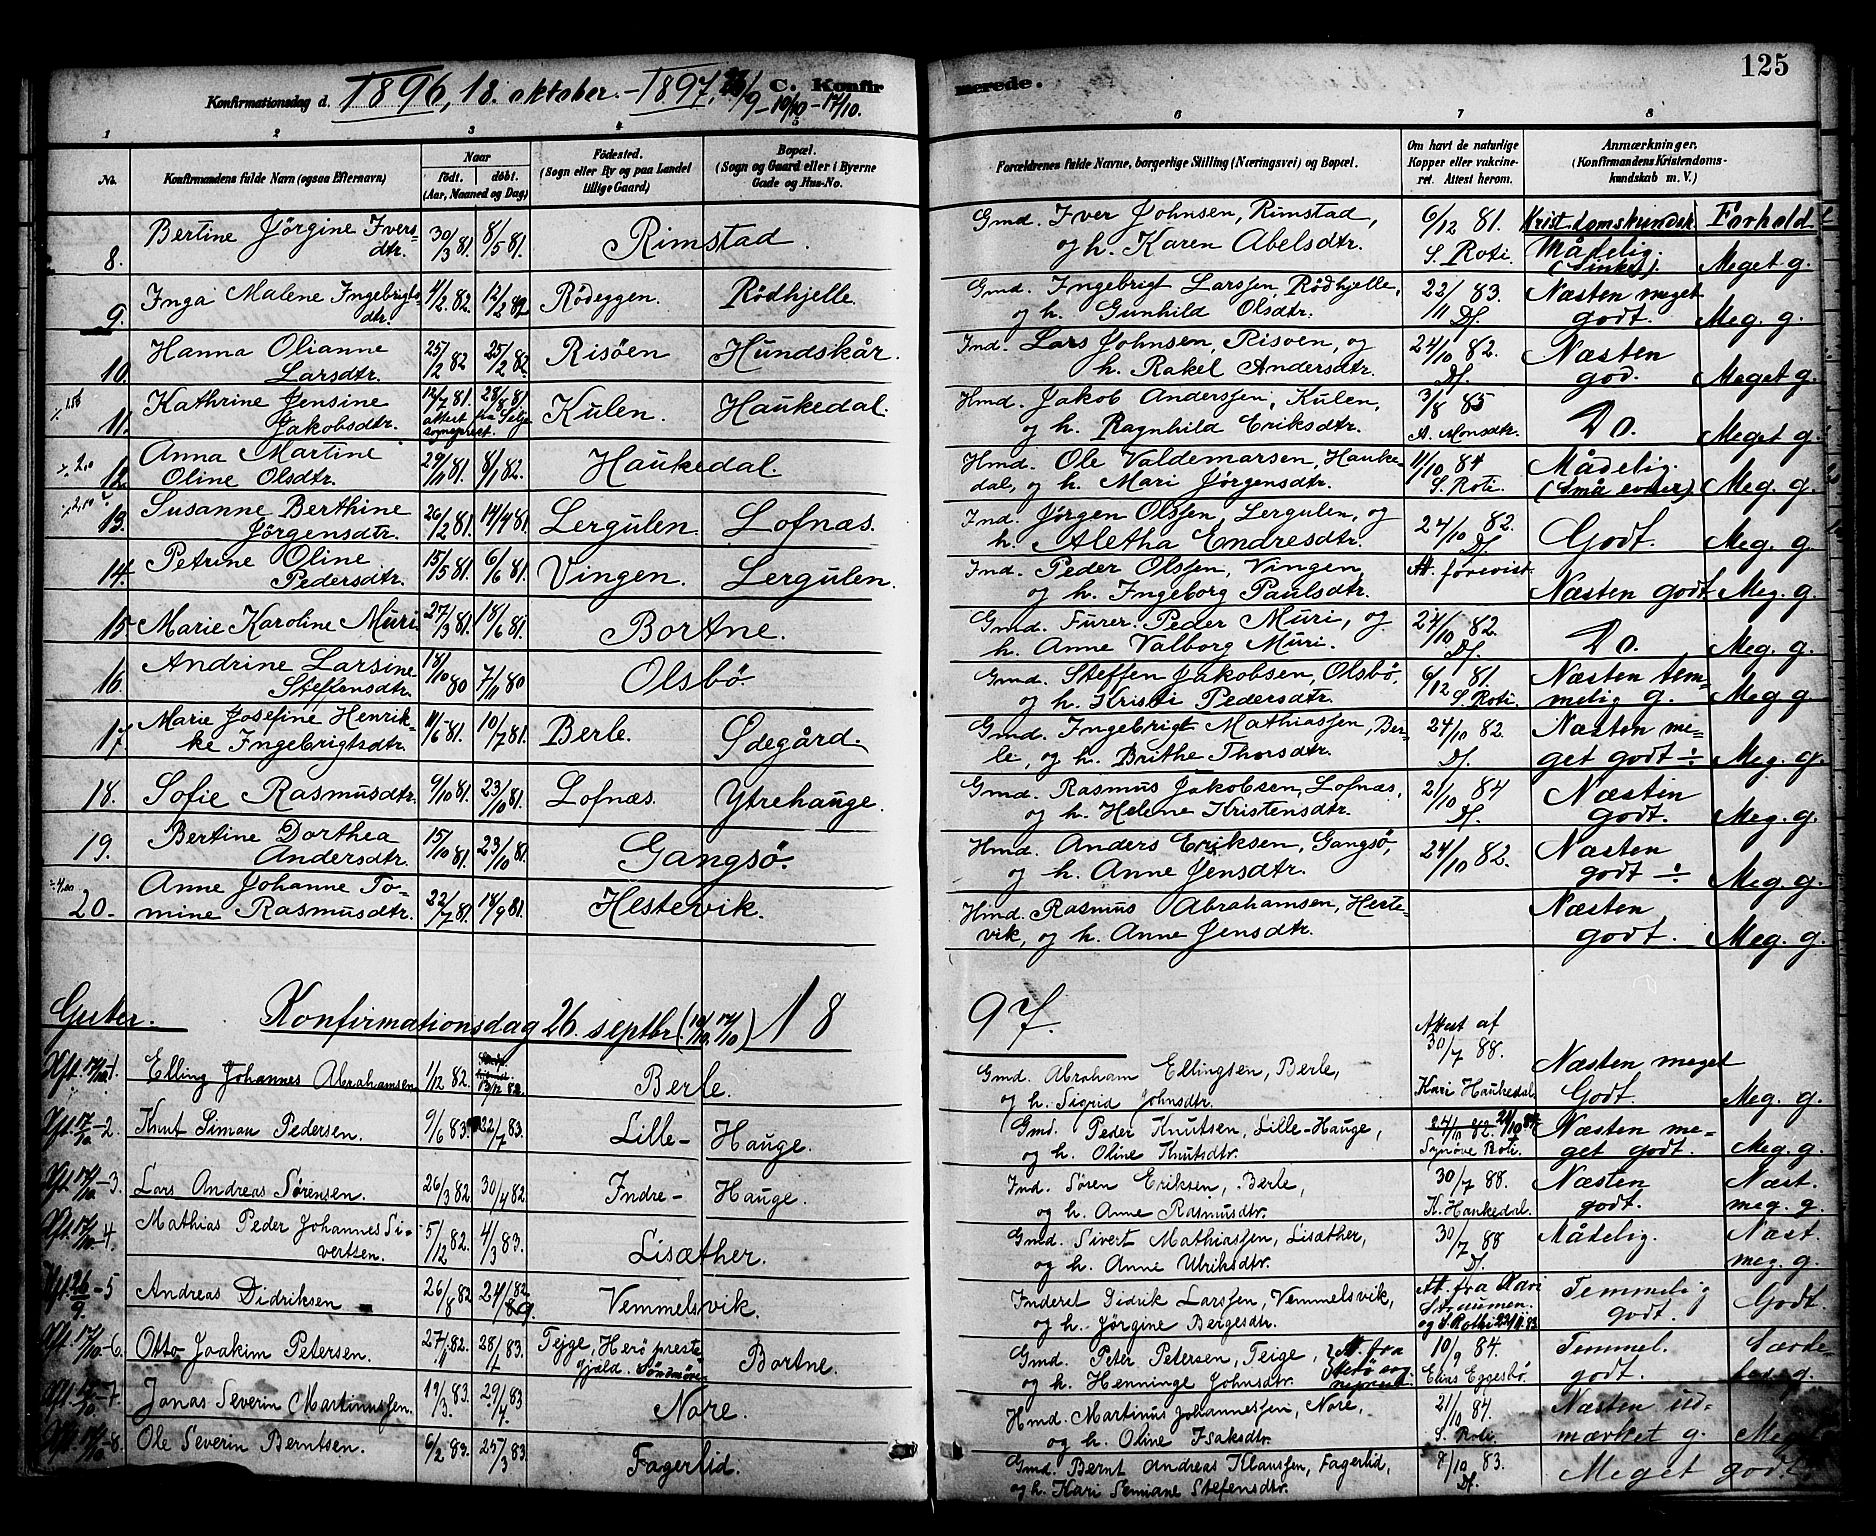 125
Konfirmationsdag d. 1896, 18. oktober. - 1897, 26/9 - 10/10 - 17/10. C. Konfirmerede.
1 2 3 4 5 6 7 8
No. Konfirmandens fulde Navn (ogsaa Efternavn) Naar födt. döbt. (Aar, Maaned og Dag) Födested. (Sogn eller By og paa Landet tillige Gaard) Bopæl. (Sogn og Gaard eller i Byerne Gade og Hus-No. Forældrenes fulde Navne, borgerlige Stilling (Næringsvei) og Bopæl. Om havt de naturlige Kopper eller vakcineret. Attest herom. Anmærkninger. (Konfirmandens Kristendomskundskab m. V.)
Krist.domskundsk. Forhold
8. Bertine Jörgine Iversdtr. 30/3 81. 8/5 81. Rimstad. Gmd. Iver Johnsen, Rimstad, og h. Karen Abelsdtr. 6/12 81. S. Roti. Mådelig. (Sinket). Meget g.
9. Inga Malene Ingebrigtsdtr. 4/2 82. 12/2 82 Rödeggen. Rödhjelle. Gmd. Ingebrigt Larssen, Rödhjelle, og h. Gunhild Olsdtr. 22/11 83. Df. Næsten meget godt. Meg. g.
10. Hanna Olianne Larsdtr. 25/2 82 25/2 82. Risöen Hundskår. Ind. Lars Johnsen, Risöen, og h. Rakel Andersdtr. 24/10 82. Df. Næsten god. Meget g.
11. Kathrine Jensine Jakobsdtr. 12/7 81. 28/8 81 attest fra Selje sogneprest. Kulen. Haukedal. Hmd. Jakob Anderssen, Kulen, og h. Ragnhild Eriksdtr. 3/8 85 A. Monsdtr. Do. Meget g.
12. Anna Martine Oline Olsdtr. 29/11 81. 8/1 82. Haukedal. Hmd. Ole Valdemarsen, Haukedal, og h. Mari Jörgensdtr. 11/10 84 S. Roti. Mådelig. (Små evner) Meg. g.
13. Susanne Berthine Jörgensdtr. 26/2 81. 14/4 81. Lergulen. Lofnæs. Ind. Jörgen Olssen, Lergulen, og h. Aletha Endresdtr. 24/10 82. Df. Godt. Meg. g.
14. Petrine Oline Pedersdtr. 15/5 81. 6/6 81. Vingen. Lergulen. Ind. Peder Olssen, Vingen, og h. Ingeborg Paulsdtr. At. forevist. Næsten godt Meg. g.
15 Marie Karoline Muri. 27/3 81. 18/6 81. Bortne. Gmd. Furer. Peder Muri, og h. Anne Valborg Muri. 24/10 82. Df. Do. Meg. g.
16. Andrine Larsine Steffensdtr. 18/10 80 7/11 80 Olsbö Gmd. Steffen Jakobsen, Olsbö, og h. Kristi Pedersdtr. 6/12 81. S. Roti. Næsten temmelig g. Meg g.
17. Marie Josefine Henrikke Ingebrigtsdtr. 11/6 81. 10/7 81. Berle. Ödegård. Gmd. Ingebrigt Mathiassen, Berle, og h. Brithe Thorsdtr. 24/10 82. Df. Næsten meget godt ÷ Meg. g.
18. Sofie Rasmusdtr. 9/10 81. 23/10 81. Lofnæs. Ytrehauge. Gmd. Rasmus Jakobsen, Lofnæs, og h. Helene Kristensdtr. 21/10 84 Df. Næsten godt. Meg. g.
19. Bertine Dorthea Andersdtr. 15/10 81. 23/10 81. Gangsö. Hmd. Anders Eriksen, Gangsö, og h. Anne Jensdtr. 24/10 82. Næsten godt ÷ Meg. g.
20. Anne Johanne Tomine Rasmusdtr. 22/7 81. 18/9 81. Hestevik. Hmd. Rasmus Abrahamsen, Hestevik, og h. Anne Jensdtr. Næsten godt. Meg. g.
Gutter. Konfirmationsdag 26. septbr. (10/10. 17/10) 18 97.
Kft. 17/10. 1 Elling Johannes Abrahamsen 1/12 82. 13/12 82. Berle. Gmd. Abraham Ellingsen, Berle, og h. Sigrid Johnsdtr. Attest af 30/7 88. Kari Haukedal. Næsten meget Godt. Meg. g.
Kft. 17/10 - 2. Knut Simon Pedersen. 9/6 83. 22/7 83. Lille- Hauge. Gmd. Peder Knutsen, Lille-Hauge, og h. Oline Knutsdtr. 24/10 82. 21/10 84. Synöve Roti. Næsten meget godt. Meg. g.
Kft. 17/10 - 3. Lars Andreas Sørensen. 26/3 82. 30/4 82. Indre- Hauge. Ind. Søren Eriksen, Berle, og h. Anne Rasmusdtr. 30/7 88. K. Haukedal. Næsten godt. Næst. meg. g.
Kft. 17/10 - 4. Mathias Peder Johannes Sivertsen. 5/12 82. 4/3 83. Lisæther. Gmd. Sivert Mathiassen, Lisæther, og h. Anne Ulriksdtr. 30/7 88 Df. Mådelig. Næst. meg. g.
Kft. 26/9. - 5 Andreas Didriksen 26/8 82 24/9 82. Vemmelsvik. Inderst Didrik Larssen, Vemmelsvik, og h. Jörgine Bergesdtr. At. fra Kari Straumen. og S. Roti 22/11 83 Temmelig godt. Godt.
Kft. 17/10 - 6. Otto Joakim Petersen. 27/11 82. 28/1 83. Tejge, Herö prestegjæld. Söndmöre. Bortne. Gmd. Peter Petersen, Teige, og h. Henninge Johnsdtr. At. fra Herö sogneprest. 10/9 84. Elias Eggesbö. Temmel. godt. Særdeles g.
7 Jonas Severin Martinussen. 19/3 83. 29/4. 83 Nore. Hmd. Martinus Johannessen, Nore, og h. Oline Isaksdtr. 21/10 84. S. Roti. Næsten udmærket g. Meget
Kft. 17/10 - 8. Ole Severin Berntsen. 6/2 83. 25/3 83. Fagerlid. Gmd. Bernt Andreas Klaussen, Fagerlid, og h. Kari Semiane Stefensdtr. 8/10 83. Df. Meget godt.